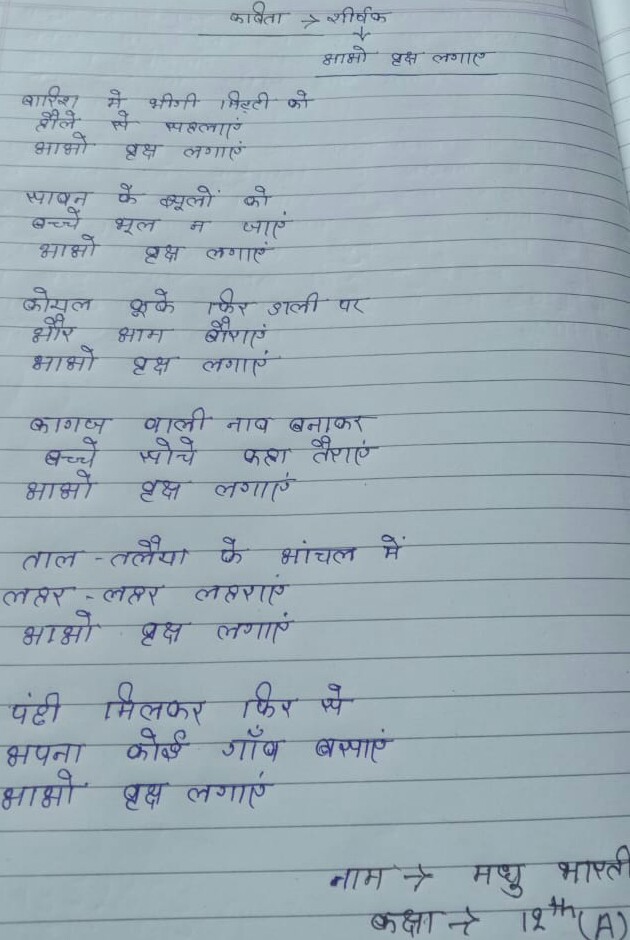 कविता → शीर्षक
↓
आओ वृक्ष लगाएं
बारिश में भीगी मिट्टी को
हौले से सहलाएं
आओ वृक्ष लगाएं
सावन के झूलों को
बच्चे भूल न जाएं
आओ वृक्ष लगाएं
कोयल कूके फिर डाली पर
और आम बौराएं
आओ वृक्ष लगाएं
कागज वाली नाव बनाकर
बच्चे सोचे कहा तैराएं
आओ वृक्ष लगाएं
ताल - तलैया के आंचल में
लहर - लहर लहराएं
आओ वृक्ष लगाएं
पंछी मिलकर फिर से
अपना कोई गाँव बसाएं
आओ वृक्ष लगाएं
नाम → मधु भारती
कक्षा → 12th (A)